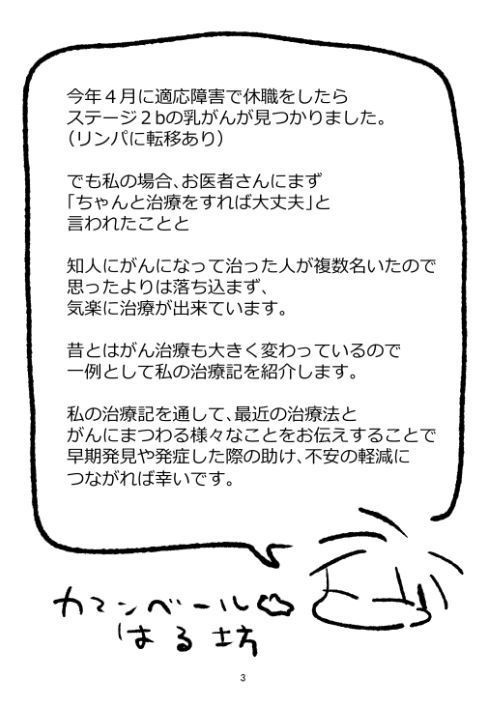 今年４月に適応障害で休職をしたら
ステージ２bの乳がんが見つかりました。
（リンパに転移あり）
でも私の場合、お医者さんにまず
「ちゃんと治療をすれば大丈夫」と
言われたことと
知人にがんになって治った人が複数名いたので
思ったよりは落ち込まず、
気楽に治療が出来ています。
昔とはがん治療も大きく変わっているので
一例として私の治療記を紹介します。
私の治療記を通して、最近の治療法と
がんにまつわる様々なことをお伝えすることで
早期発見や発症した際の助け、不安の軽減に
つながれば幸いです。
カマンベール
はる坊
3